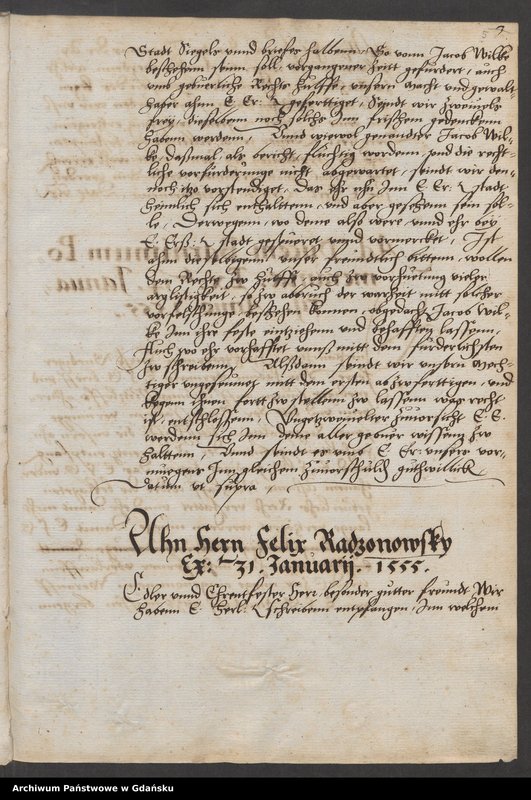 Stadt Siegels unnd brieffes halbenn, So vonn Jacob Wilke
beschehenn seinn soll, vorgangener zeitt gefurdert, auch
und geburliche Rechts hulffe, unsern Macht und gewalt-
haber ahn E. Er: gefertiget, Seindt wir zweiuels
frey, dieselbenn noch solchs Inn frischem gedencken
habenn werdenn, Unnd wiewol genandter Jacob Wil-
ke, dasmal, als bericht, fluchtig wordenn, und die recht-
liche vorfurderunge nicht abgewartet, seindt wir den-
noch itzo vorstendiget, Das ehr sich Inn E. Er: Stadt
heimlich sich enthaltenn, und aber gesehenn sein sol-
le, Derwegenn, wo deme also were, unnd ehr bey
E. Ers: Stadt gespueret unnd vormercket, Ist
ahn dieselbigenn unser freundtlich bittenn, wollen
dem Rechte zw hulffe, auch zw vorhuetung vieler
arglistigkeit, so zw abbruch der warheit mitt solcher
bestehen konnen, obgedachten Jacob Wil-
ke Inn ihre feste einziehenn und behafften lassenn,
Auch wo ehr vorhafftet unnß mitt dem furderlichsten
zw schreibenn, Alßdann seindt wir unsern Mech-
tiger ungeseumet mitt dem ersten abzwferttigen, und
kegenn ihnen fortt zw stellenn zw lassenn was recht
ist, entschlossenn, Ungetzweiuelter zuuorsicht E. E.
werdenn sich Inn deme aller gebuer wissenn zw
haltenn, Unnd seindt es umb E. Er: unsers vor-
muegens Inn gleichem zuuorschulden guthwillick
Datum ut supra
Ahn Hern Felix Radzonowsky
Ex: 31. Januarij. 1555.
Edler unnd Ehrentfester Herr, besonder gutter freundt, Wir
habenn E. Herl: schreibenn entpfangen, Inn welchem
Archiwum Państwowe w Gdańsku